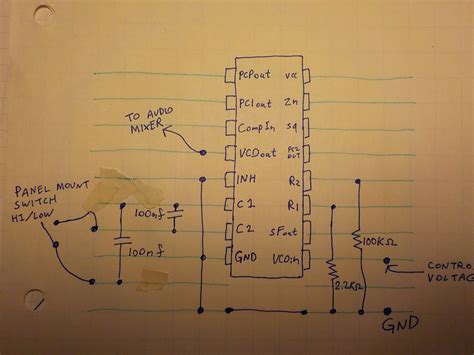 PCPout
Vcc
PC1out
Zn
CompIn
sq
TO AUDIO
MIXER
VCOout
PC2
OUT
PANEL MOUNT
SWITCH
HI/LOW
INH
R2
C1
R1
100nf
C2
SFout
100KΩ
100nf
GND
VCOin
CONTRO
VOLTAG
2.2KΩ
GND